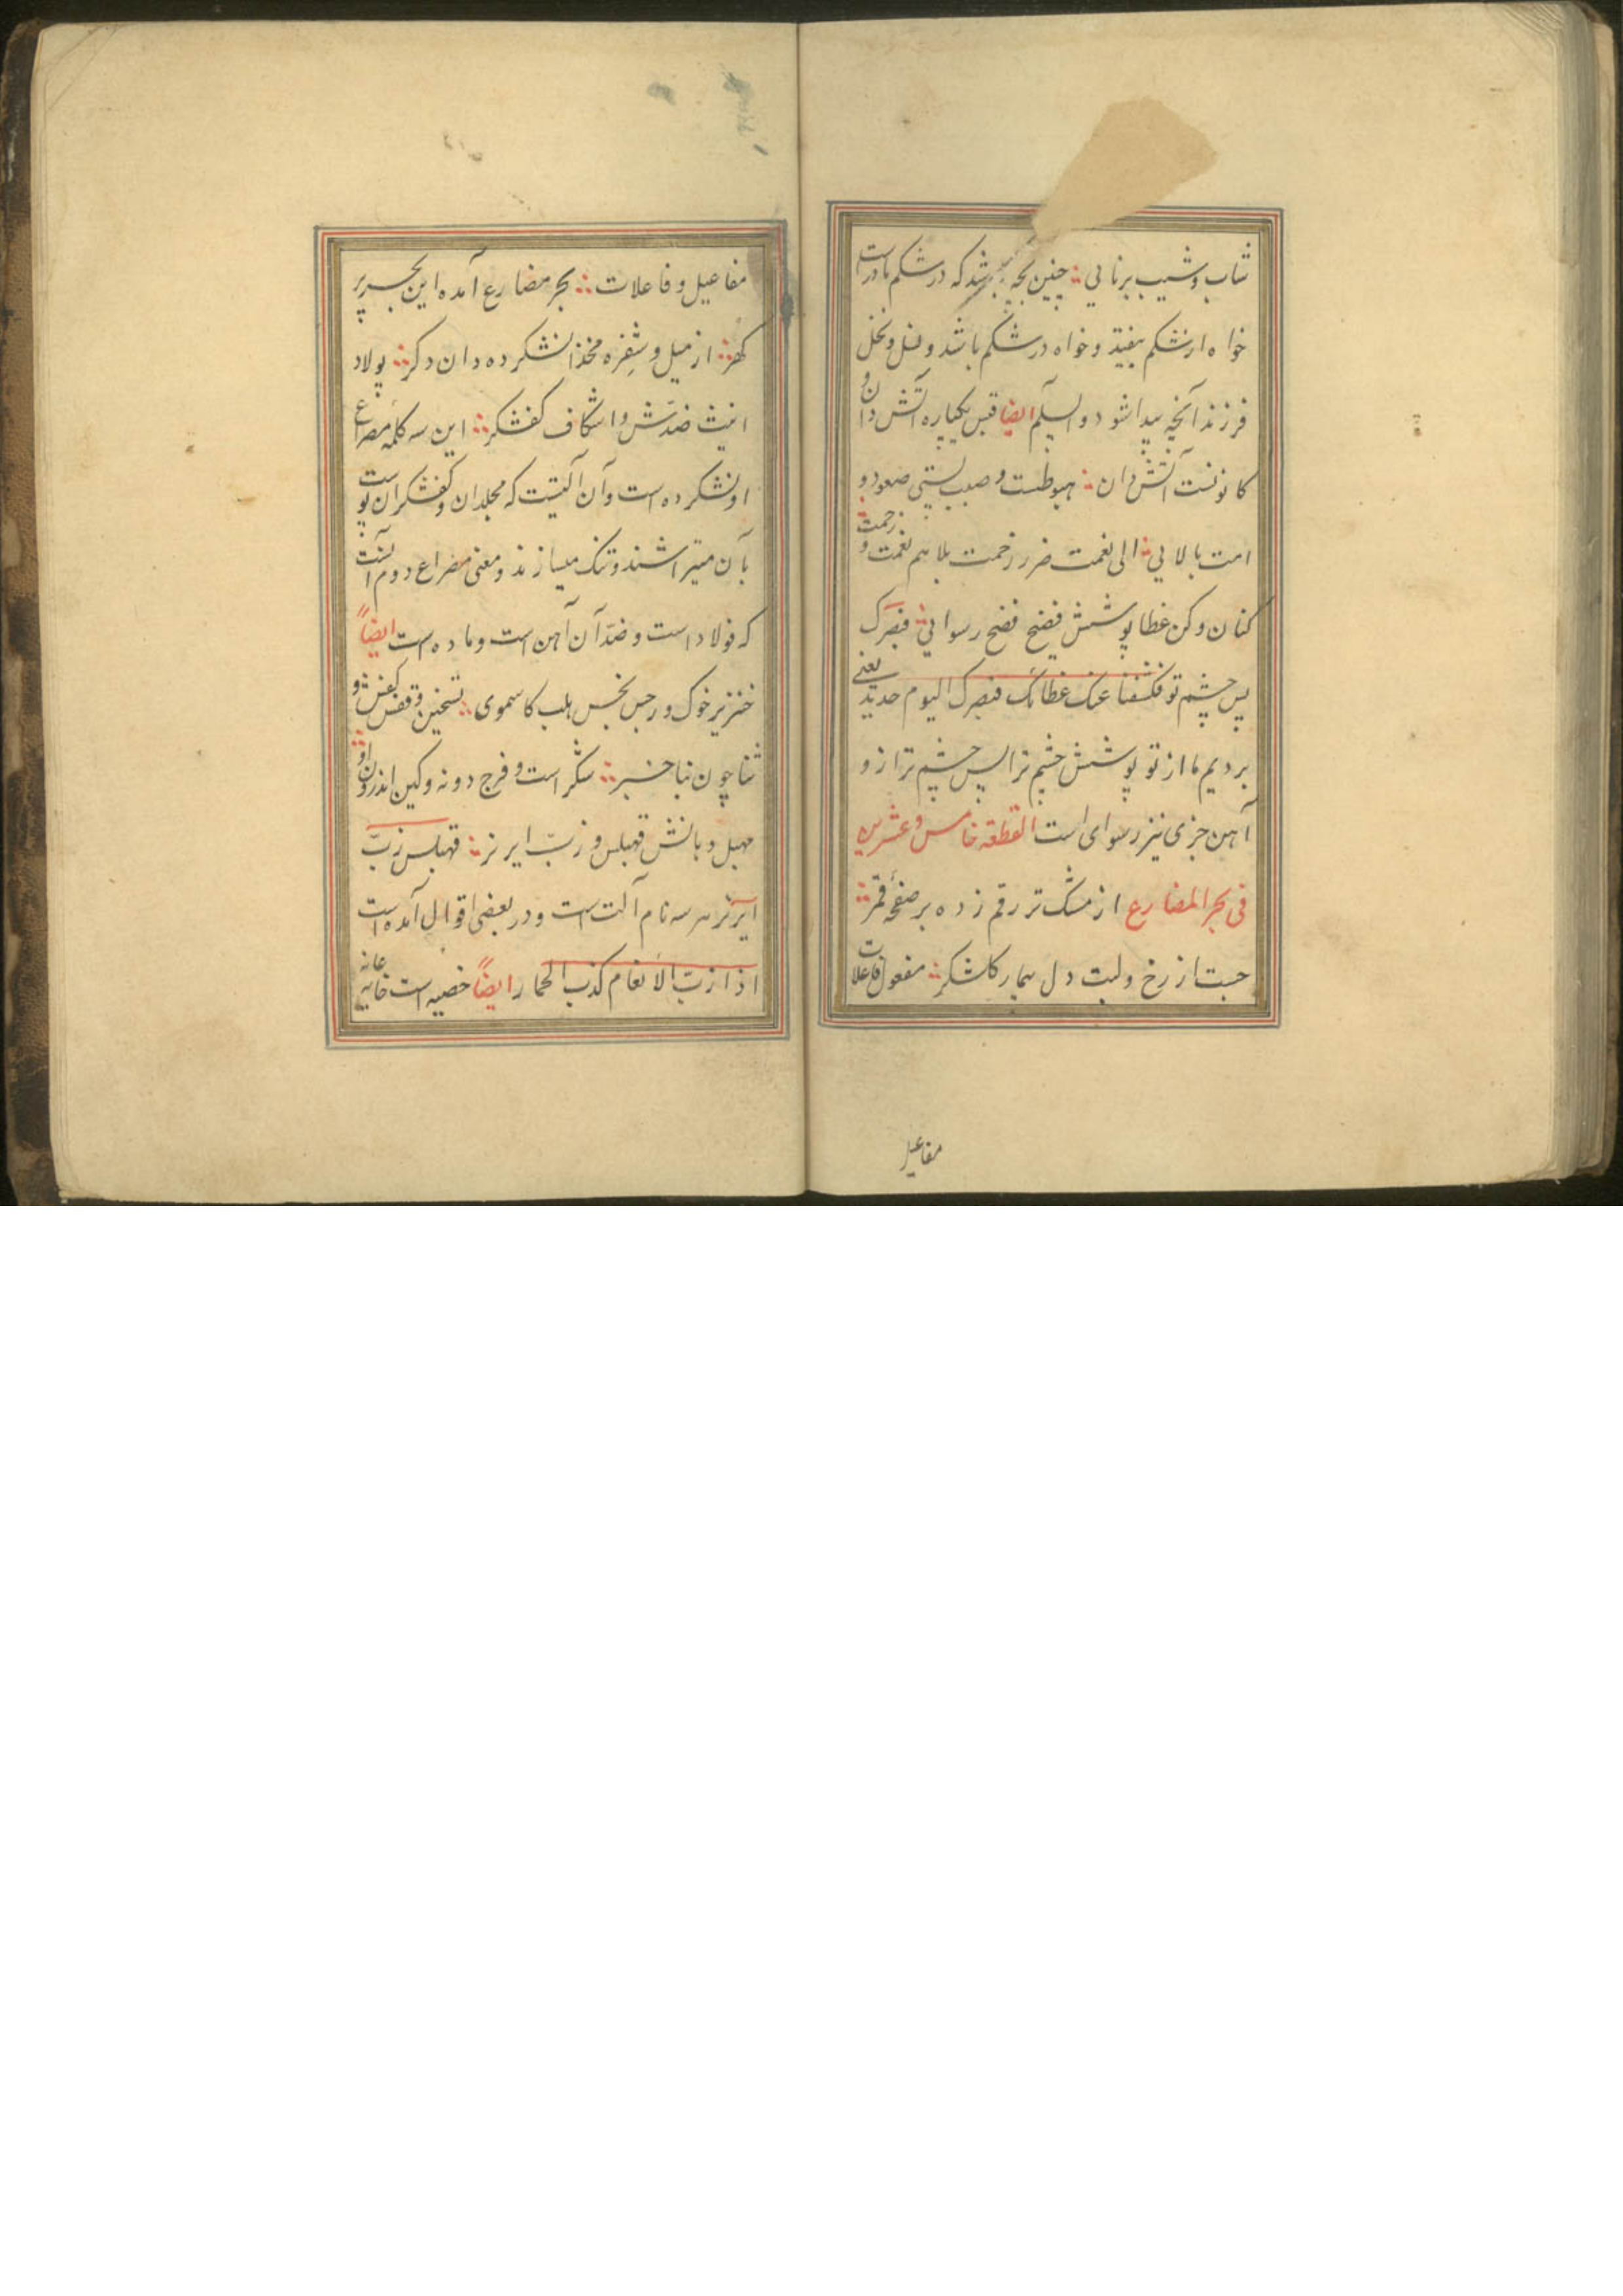 شاب و شیب برنایی جنین بچه باشد که در شکم مادرست
خواه از شکم بیفتد و خواه در شکم باشد و نسل و نجل
فرزند آنچه پیدا شود والسلم ایضا قبس یکپاره آتش دان و
کانونست آتش دان هبوطست و صبب پستی صعود و
امت بالایی الی نعمت ضرر زحمت بلا هم نعمت و زحمت
کنان و کن غطا پوشش فضح فضح رسوایی فبصرک
پس چشم تو فکشفنا عنک غطائک فبصرک الیوم حدید یعنی
بردیم ما از تو پوشش چشم ترا پس چشم ترازو
آهن خزی نیز رسوای است القطعه خامس و عشرین
فی بحر المضارع از مشک تر رقم زده بر صفحهٔ قمر
حسبت از رخ و لبت دل بیمار کاشکر مفعول فاعلات
مفاعیل
مفاعیل و فاعلات بحر مضارع آمده این بحر پر
کهر ازمیل و شفره مخذ النشکرده دان دکر پولاد
انیث ضدش و اشکاف کفشکر این سه کلمه مصراع
اونشکرده است و آن آلتیست که مجلدان و کفشکران پوست
بآن میتراشند و تنک میسازند و معنی مصراع دوم آنست
که فولاد است و ضد آن آهن است و ماده است ایضاً
خنزیر خوک و رجس نجس هلب کاسموی تسخین و قفش کفش و
ثنا چون نبا خبر شکر است و فرج دونه وکین اندرون او
مهبل و بانش قهبلس و زبّ ایر نر قهبلس زبّ
ایر نر هر سه نام آلت است و در بعضی اقوال آمده است
اذا ازبّ الانعام کذب الحمار ایضاً خصیه است خایه عانه